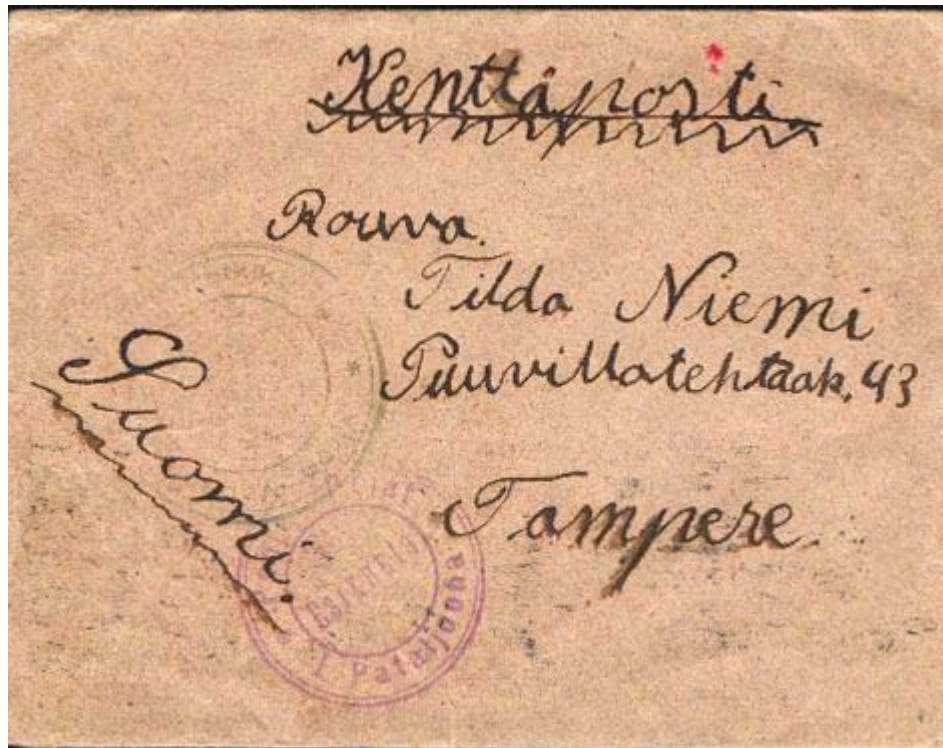 Kenttäposti
Rouva.
Tilda Niemi
Puuvillatehtaak. 43
Tampere.
Suomi.
I Pataljoona